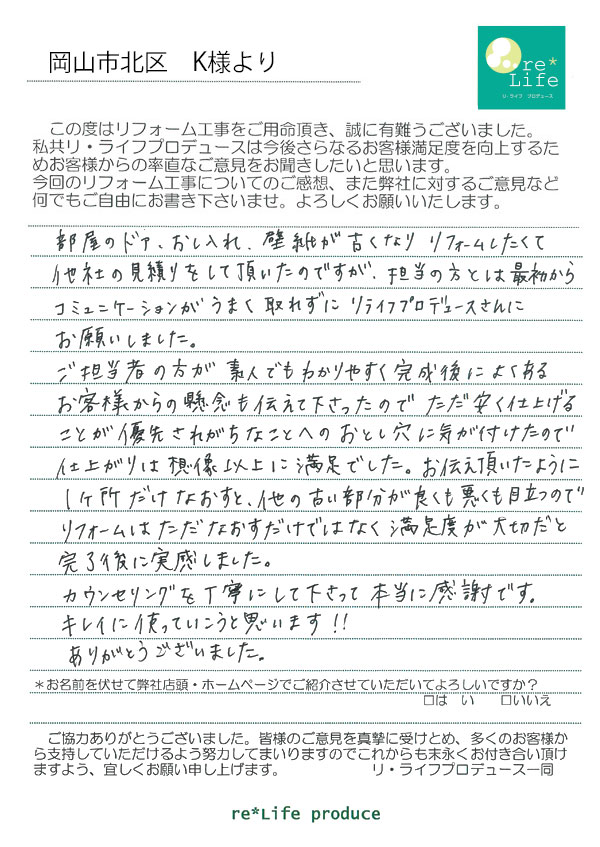 岡山市北区　K様より
re*
Life
リ・ライフ　プロデュース
この度はリフォーム工事をご用命頂き、誠に有難うございました。
私共リ・ライフプロデュースは今後さらなるお客様満足度を向上するた
めお客様からの率直なご意見をお聞きしたいと思います。
今回のリフォーム工事についてのご感想、また弊社に対するご意見など
何でもご自由にお書き下さいませ。よろしくお願いいたします。
部屋のドア、おし入れ、壁紙が古くなり リフォームしたくて
他社の見積りをして頂いたのですが、担当の方とは最初から
コミュニケーションがうまく取れずに リライフプロデュースさんに
お願いしました。
ご担当者の方が 素人でもわかりやすく完成後によくある
お客様からの懸念も伝えて下さったので ただ安く仕上げる
ことが優先されがちなことへのおとし穴に気が付けたので
仕上がりは想像以上に満足でした。お伝え頂いたように
1ヶ所だけなおすと、他の古い部分が良くも悪くも目立つので
リフォームはただなおすだけではなく満足度が大切だと
完了後に実感しました。
カウンセリングを丁寧にして下さって本当に感謝です。
キレイに使っていこうと思います!!
ありがとうございました。
*お名前を伏せて弊社店頭・ホームページでご紹介させていただいてよろしいですか？
□は　い　　□いいえ
ご協力ありがとうございました。皆様のご意見を真摯に受けとめ、多くのお客様か
ら支持していただけるよう努力してまいりますのでこれからも末永くお付き合い頂け
ますよう、宜しくお願い申し上げます。　　　　　リ・ライフプロデュース一同
re*Life produce